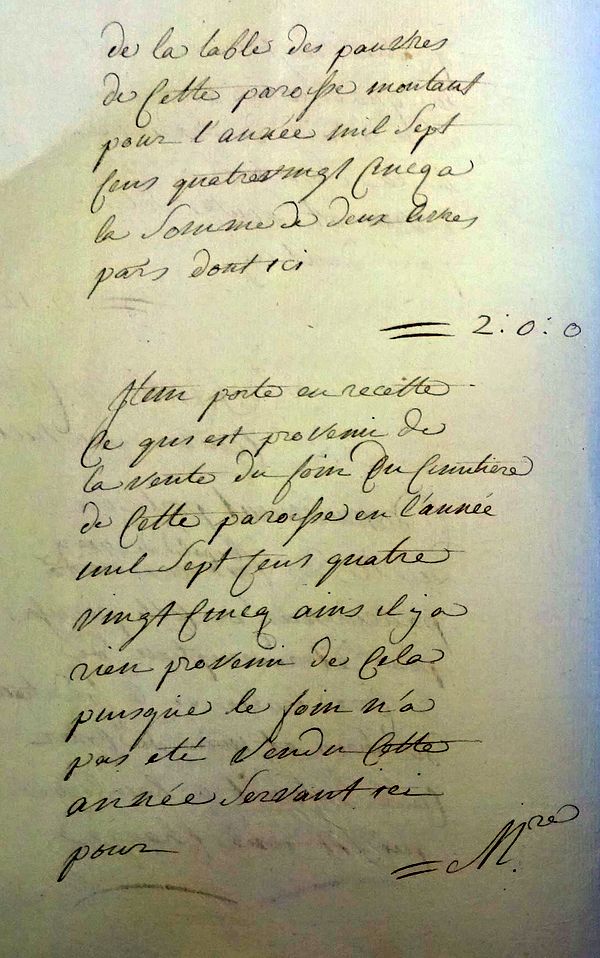 de la table des pauvres
de Cette paroisse montant
pour l'année mil Sept
Cens quatrevingt Cincq a
la Somme de deux livres
paris dont ici
2 : 0 : 0
Item porte en recette
Ce qui est provenu de
la vente du foin Du Cimitiere
de Cette paroisse en l'année
mil Sept Cens quatre
vingt Cincq ains il y a
rien provenu de Cela
puisque le foin n'a
pas eté vendu Cette
année Servant ici
pour
= M.re